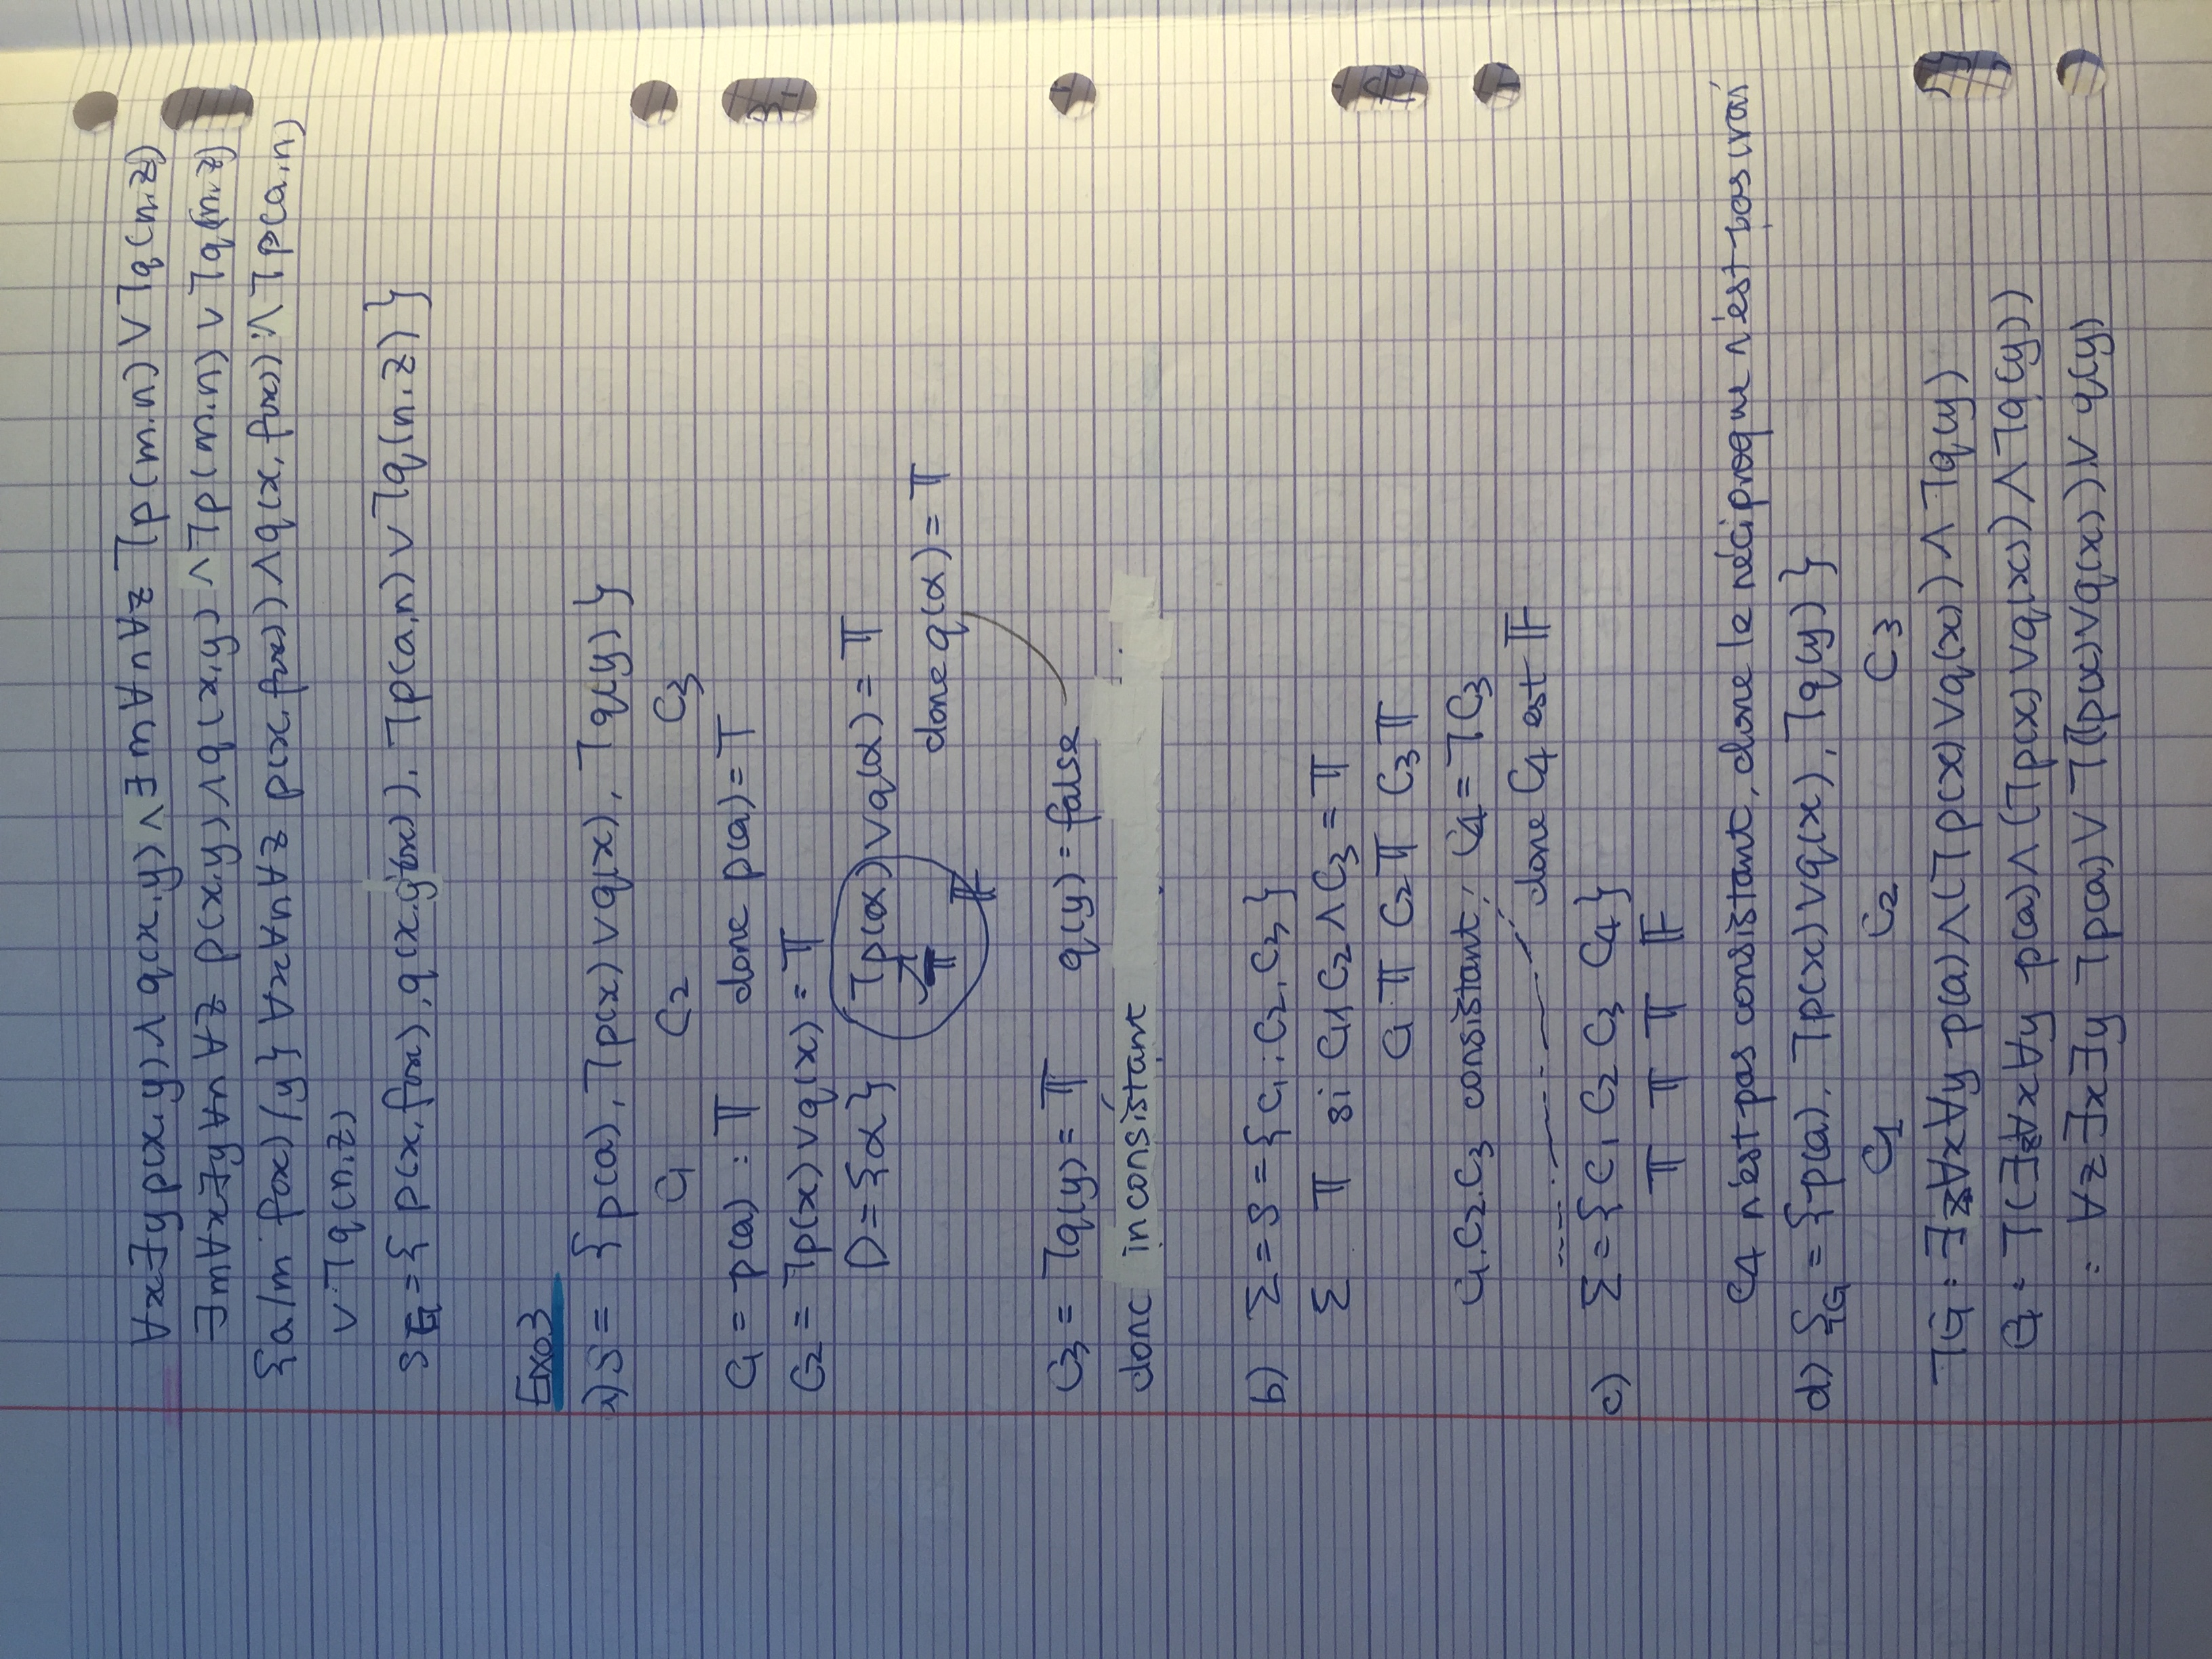 ∀x∃y p(x,y) ∧ q(x,y) ∧ ∃m∀n∀z ¬p(m,n) ∨ ¬q(n,z)
∃m∀x∃y∀n∀z p(x,y) ∧ q(x,y) ∧ ¬p(m,n) ∨ ¬q(n,z)
{a/m f(x)/y} ∀x∀n∀z p(x,f(x)) ∧ q(x,f(x)) ∧ ¬p(a,n)
∨ ¬q(n,z)
S_G = { p(x,f(x)), q(x,g(x)), ¬p(a,n) ∨ ¬q(n,z) }
Exo3
1) S = {p(a), ¬p(x) ∨ q(x), ¬q(y)}
C1 C2 C3
C1 = p(a) : T donc p(a) = T
C2 = ¬p(x) ∨ q(x) = T
D = {α} ¬p(α) ∨ q(α) = T
T F donc q(α) = T
C3 = ¬q(y) = T q(y) = false
donc inconsistant
b) Σ = S = {C1, C2, C3}
Σ T si C1 ∧ C2 ∧ C3 = T
C1 T C2 T C3 T
C1, C2, C3 consistant, C4 = ¬C3
donc C4 est F
c) Σ = {C1 C2 C3 C4}
T T T F
C4 n'est pas consistant, donc le réciproque n'est pas vrai
d) S¬G = {p(a), ¬p(x) ∨ q(x), ¬q(y)}
C1 C2 C3
¬G : ∃z∀x∀y p(a) ∧ (¬p(x) ∨ q(x)) ∧ ¬q(y)
G : ¬(∃z∀x∀y p(a) ∧ (¬p(x) ∨ q(x)) ∧ ¬q(y))
: ∀z∃x∃y ¬p(a) ∨ ¬(¬p(x) ∨ q(x)) ∨ q(y)